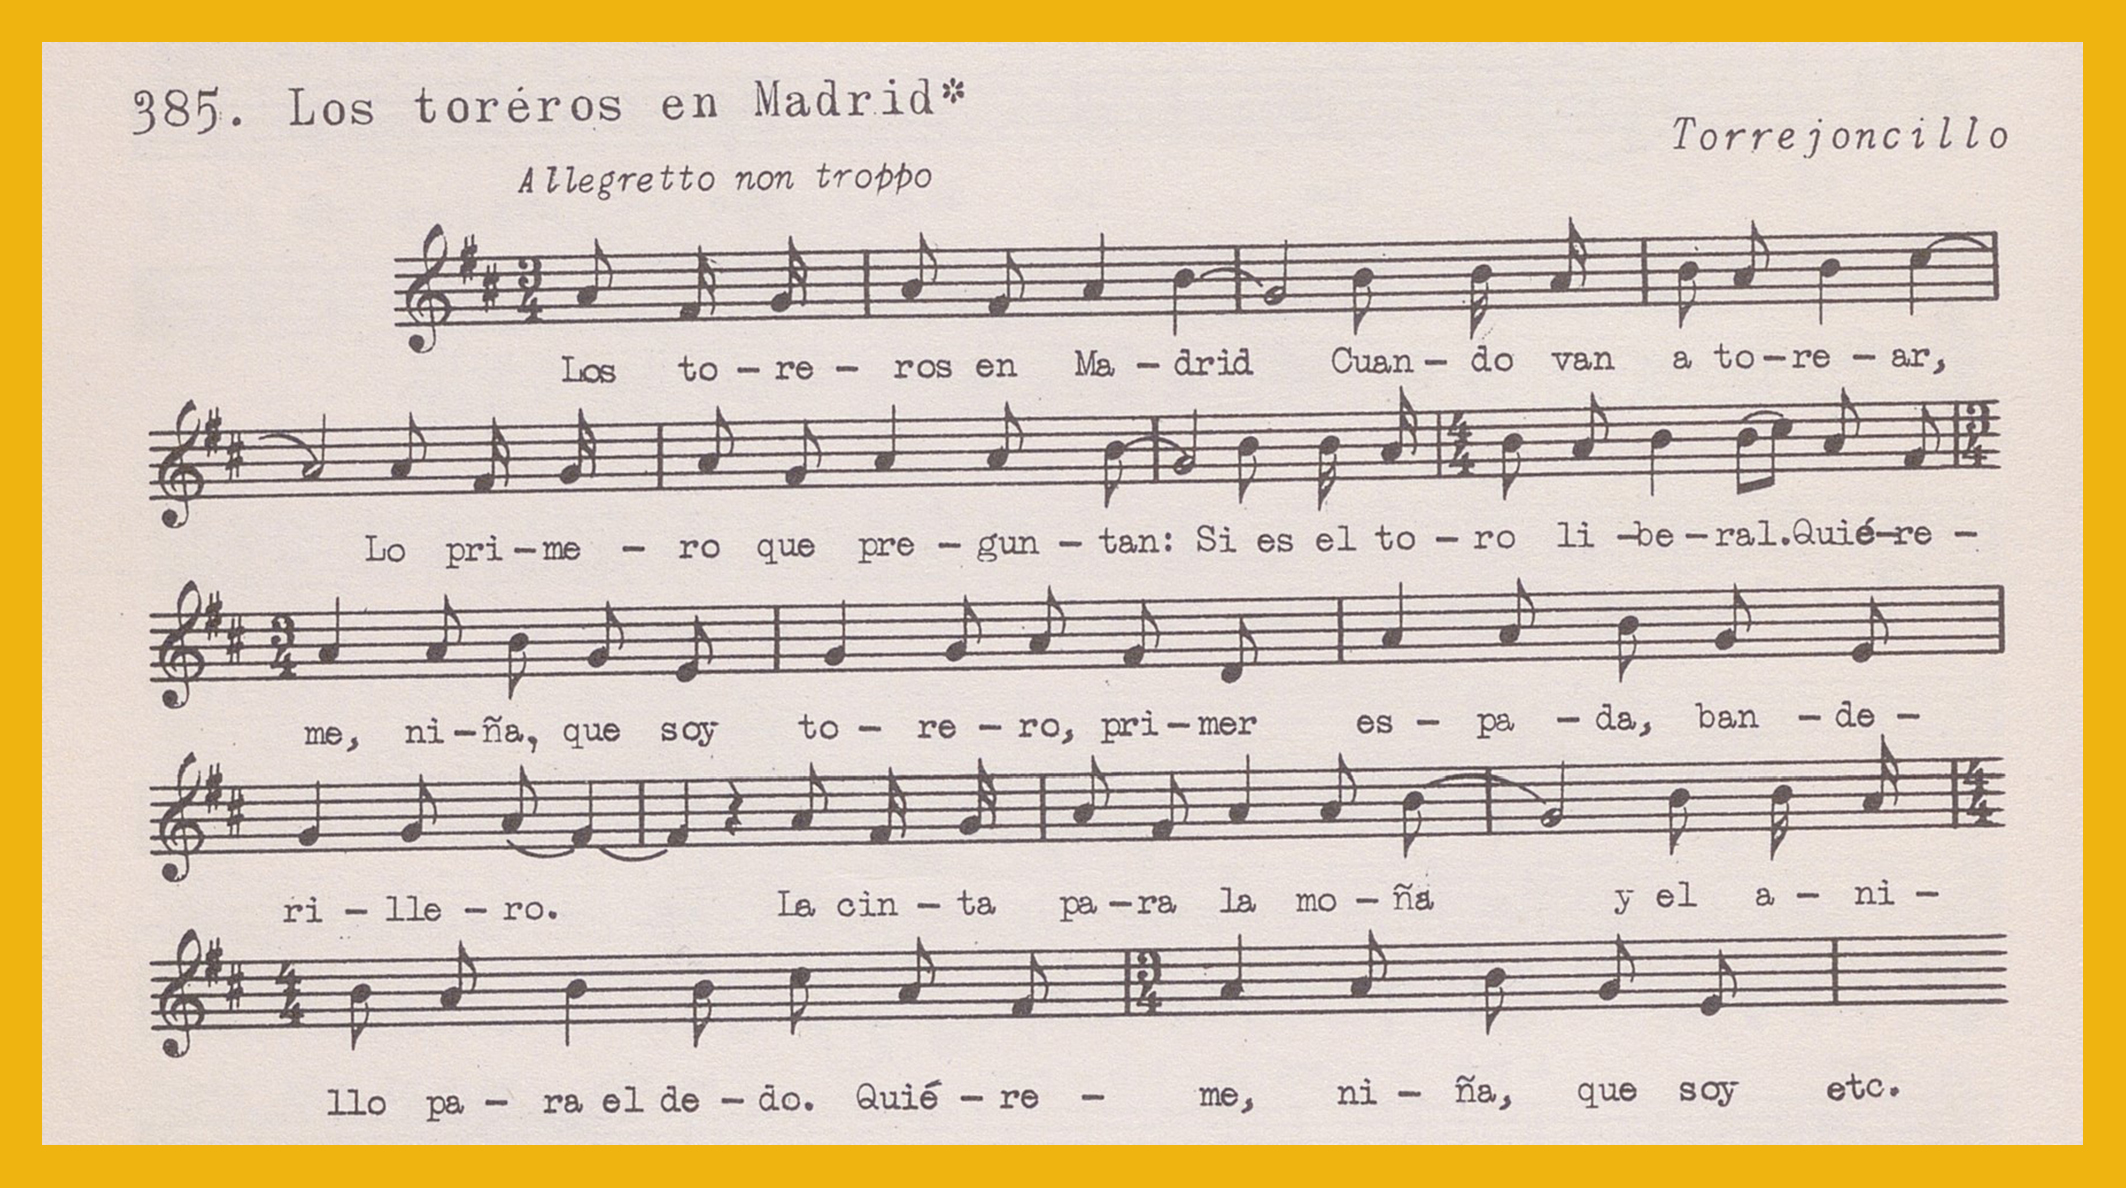 385. Los toréros en Madrid*
Torrejoncillo
Allegretto non troppo
3
4
Los to - re - ros en Ma - drid Cuan - do van a to - re - ar,
4
4
3
4
Lo pri - me - ro que pre - gun - tan: Si es el to - ro li - be - ral. Quié - re -
3
4
me, ni - ña, que soy to - re - ro, pri - mer es - pa - da, ban - de -
4
4
ri - lle - ro. La cin - ta pa - ra la mo - ña y el a - ni -
4
4
3
4
llo pa - ra el de - do. Quié - re - me, ni - ña, que soy etc.